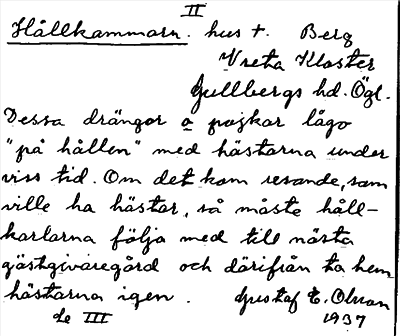 II
Hållkammarn. hus t. Berg
Vreta Kloster
Gullbergs hd. Ögl.
Dessa drängar o pojkar lågo
"på hållen" med hästarna under
viss tid. Om det kom resande, som
ville ha hästar, så måste håll-
karlarna följa med till nästa
gästgivaregård och därifrån ta hem
hästarna igen. Gustaf E. Olsson
se III 1937